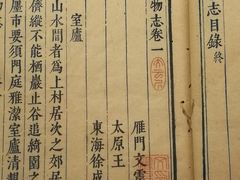 志目錄 終
物志卷一
雁門文震
太原王
東海徐成
室廬
山水間者為上村居次之郊居
儕縱不能栖巖止谷追綺園之
廛市要須門庭雅潔室廬清靚